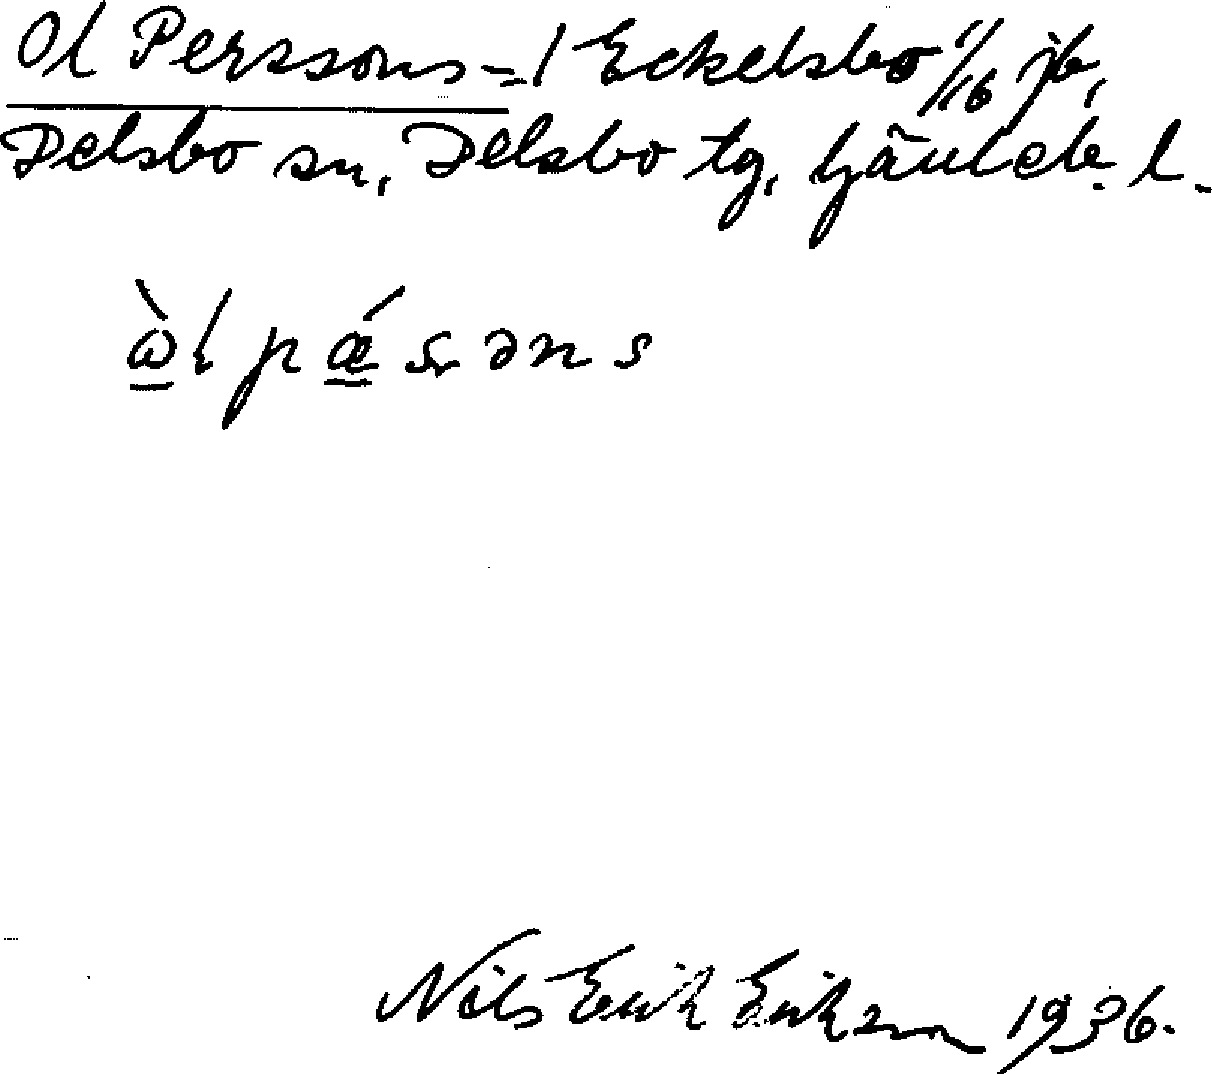 Ol Perssons = 1 Eckelsbo 1/16 jb,
Delsbo sn, Delsbo tg, Gävleb. l.
ὼ̲l pǽ̲ʂəns
Nils Erik Erikson 1936.